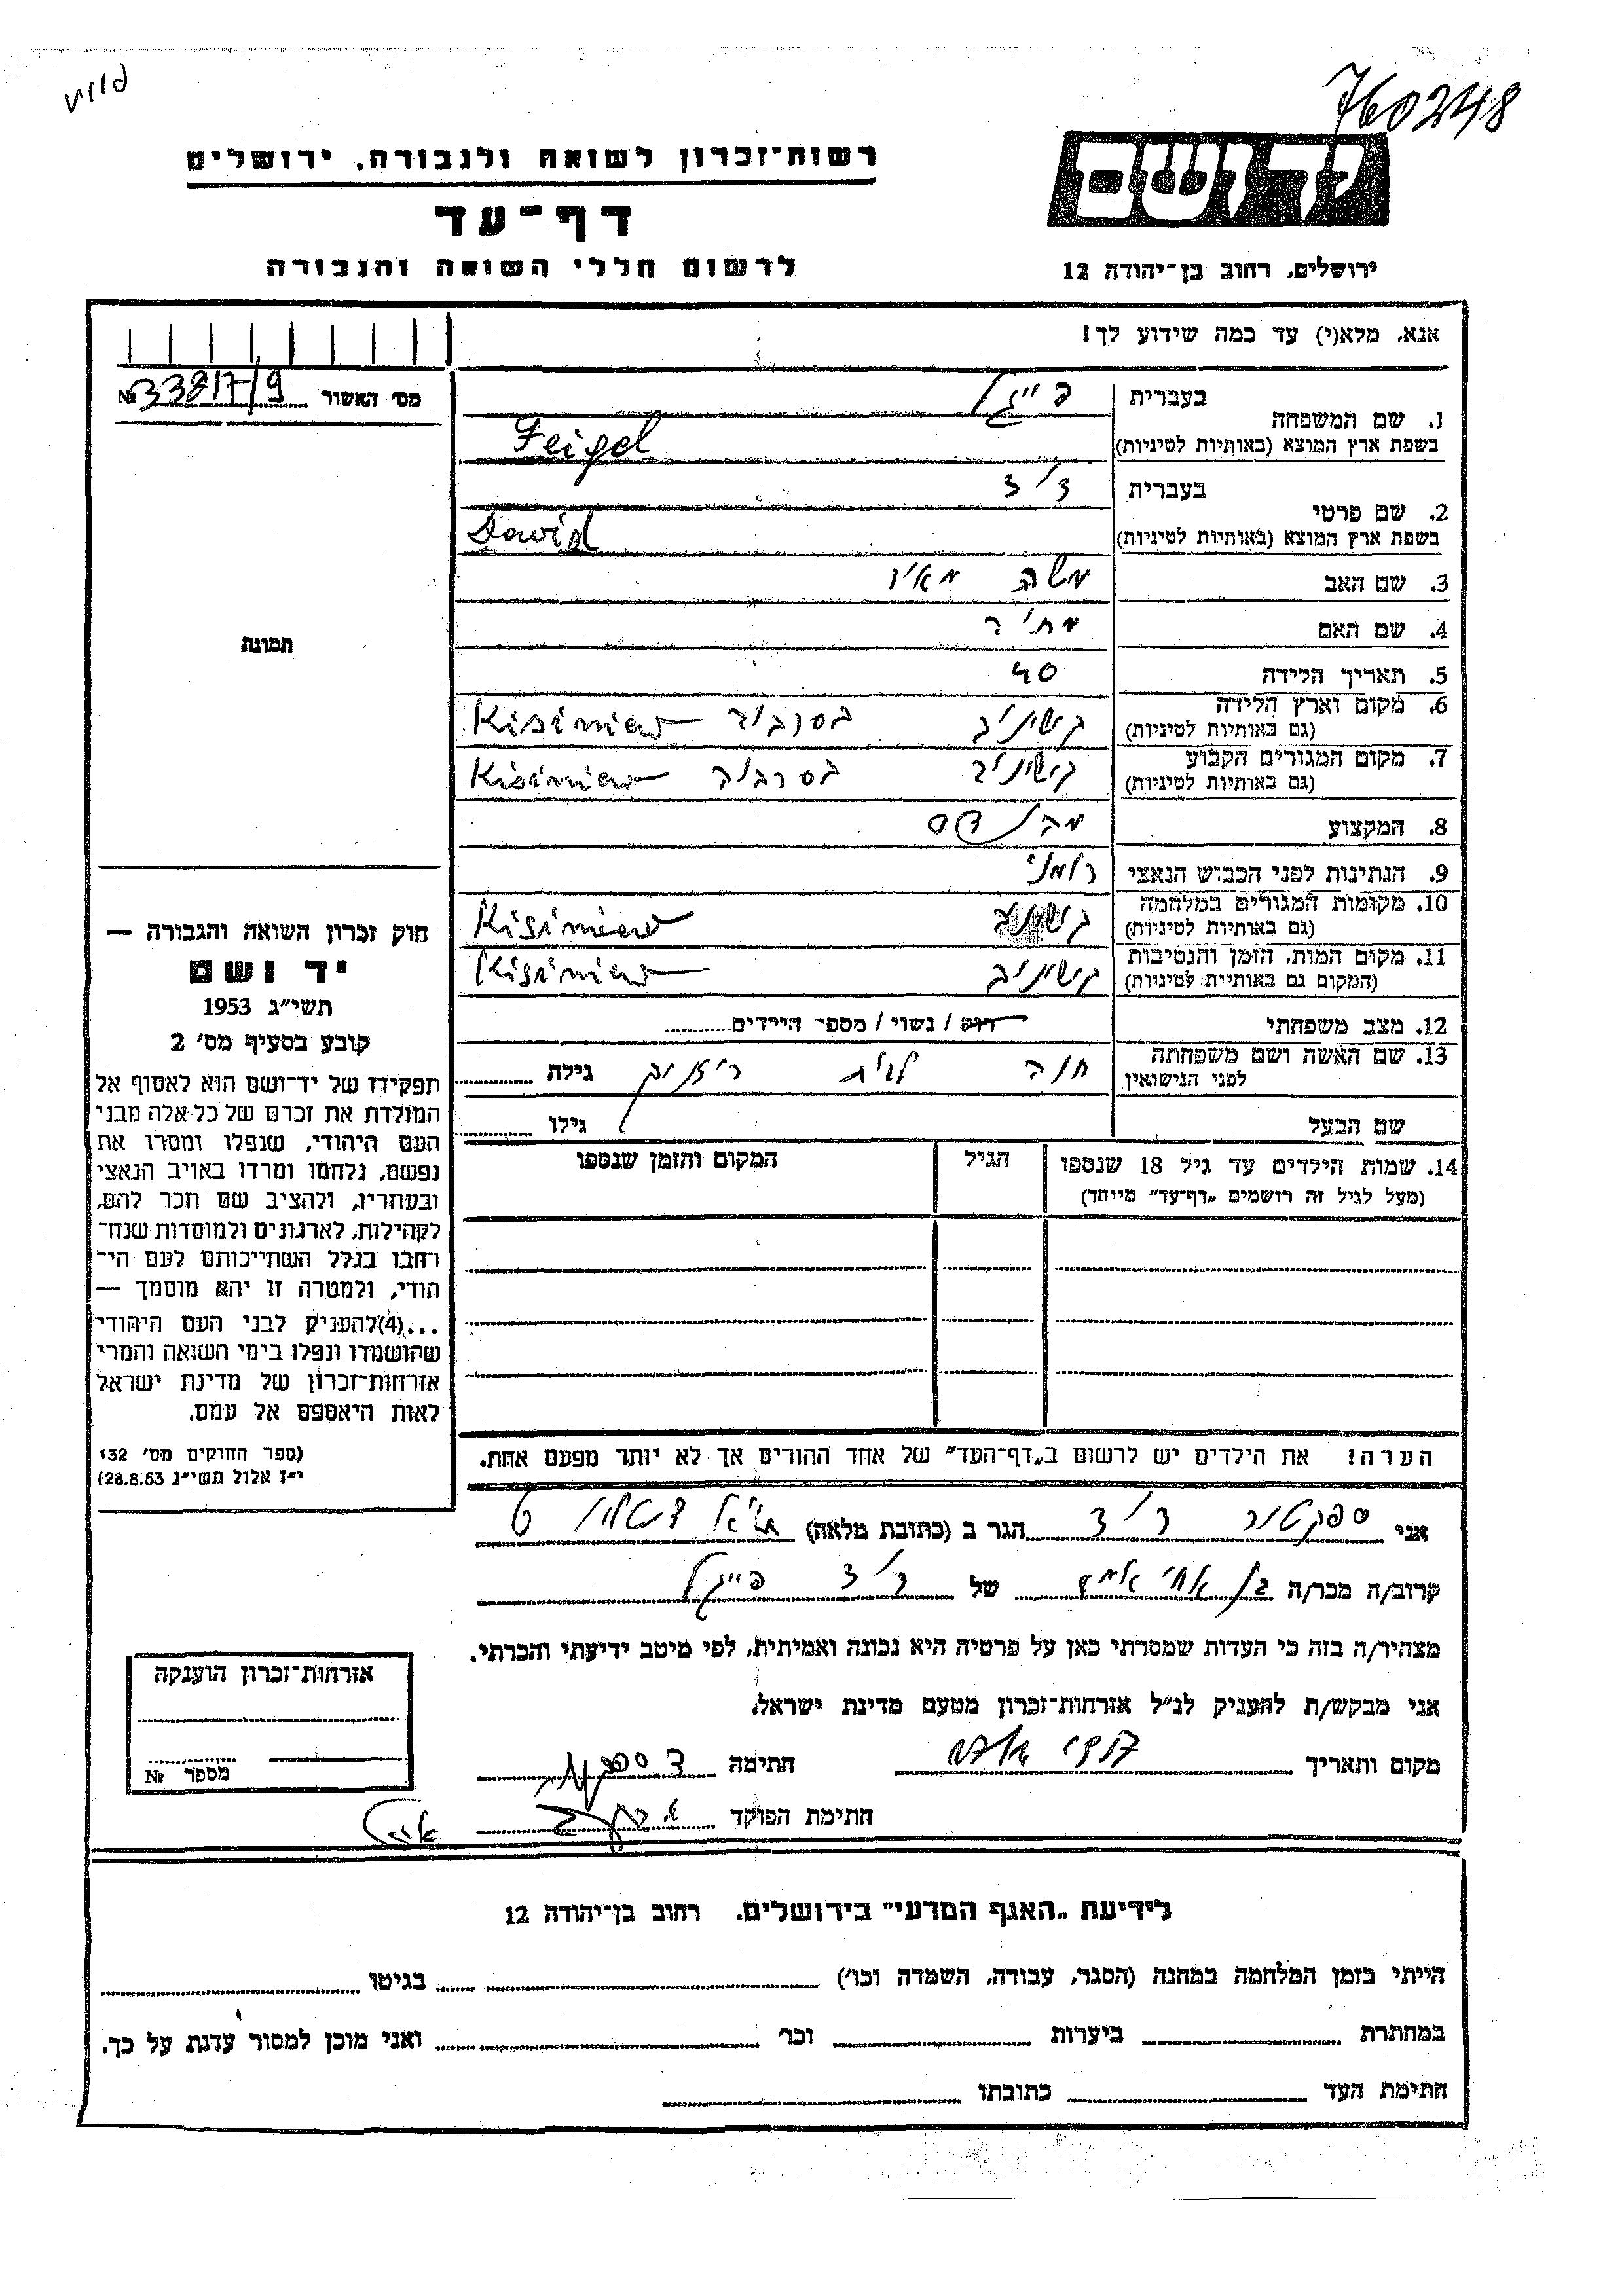 760248
רשות־זכרון לשואה ולגבורה, ירושלים
יד ושם
דף־עד
לרשום חללי השואה והגבורה
ירושלים, רחוב בן־יהודה 12
אנא, מלא(י) עד כמה שידוע לך!
מס׳ האשור 33817/9 №
תמונה
1. שם המשפחה
בעברית פייגל
בשפת ארץ המוצא (באותיות לטיניות) Feigel
2. שם פרטי
בעברית דוד
בשפת ארץ המוצא (באותיות לטיניות) David
3. שם האב משה מאיר
4. שם האם
5. תאריך הלידה 40
6. מקום וארץ הלידה קישינוב בסרביה Kisiniew
(גם באותיות לטיניות)
7. מקום המגורים הקבוע קישינוב בסרביה Kisiniew
(גם באותיות לטיניות)
8. המקצוע מהנדס
9. הנתינות לפני הכבוש הנאצי רומני
10. מקומות המגורים במלחמה קישינוב Kisiniew
(גם באותיות לטיניות)
11. מקום המות, הזמן והנסיבות קישינוב Kisiniew
(המקום גם באותיות לטיניות)
12. מצב משפחתי רווק / נשוי / מספר הילדים
13. שם האשה ושם משפחתה חנה לבית גילה
לפני הנישואין
שם הבעל גילו
14. שמות הילדים עד גיל 18 שנספו הגיל המקום והזמן שנספו
(מעל לגיל זה רושמים „דף־עד״ מיוחד)
הערה! את הילדים יש לרשום ב„דף־העד״ של אחד ההורים אך לא יותר מפעם אחת.
חוק זכרון השואה והגבורה —
יד ושם
תשי״ג 1953
קובע בסעיף מס׳ 2
תפקידו של יד־ושם הוא לאסוף אל
המולדת את זכרם של כל אלה מבני
העם היהודי, שנפלו ומסרו את
נפשם, נלחמו ומרדו באויב הנאצי
ובעוזריו, ולהציב שם וזכר להם,
לקהילות, לארגונים ולמוסדות שנח־
רבו בגלל השתייכותם לעם הי־
הודי, ולמטרה זו יהא מוסמך —
...(4) להעניק לבני העם היהודי
שהושמדו ונפלו בימי השואה והמרי
אזרחות־זכרון של מדינת ישראל
לאות היאספם אל עמם.
(ספר החוקים מס׳ 132
י״ז אלול תשי״ג 28.8.53)
אני ספקטור דוד הגר ב (כתובת מלאה)
קרוב/ה מכר/ה של דוד פייגל
מצהיר/ה בזה כי העדות שמסרתי כאן על פרטיה היא נכונה ואמיתית, לפי מיטב ידיעתי והכרתי.
אני מבקש/ת להעניק לנ״ל אזרחות־זכרון מטעם מדינת ישראל.
מקום ותאריך חתימה
חתימת הפוקד
אזרחות־זכרון הוענקה
מספר №
לידיעת „האגף המדעי״ בירושלים, רחוב בן־יהודה 12
הייתי בזמן המלחמה במחנה (הסגר, עבודה, השמדה וכו׳) בגיטו
במחתרת ביערות וכו׳ ואני מוכן למסור עדות על כך.
חתימת העד כתובתו